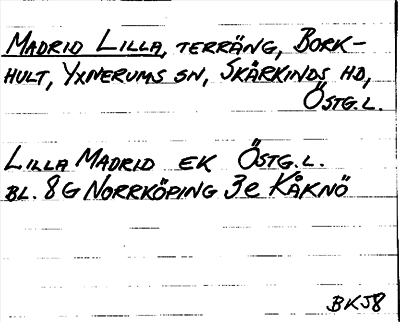 MADRID LILLA, TERRÄNG, BORK-
HULT, YXNERUMS SN, SKÄRKINDS HD,
ÖSTG.L.
LILLA MADRID EK ÖSTG.L.
BL. 8G NORRKÖPING 3e KÅKNÖ
BKJ8